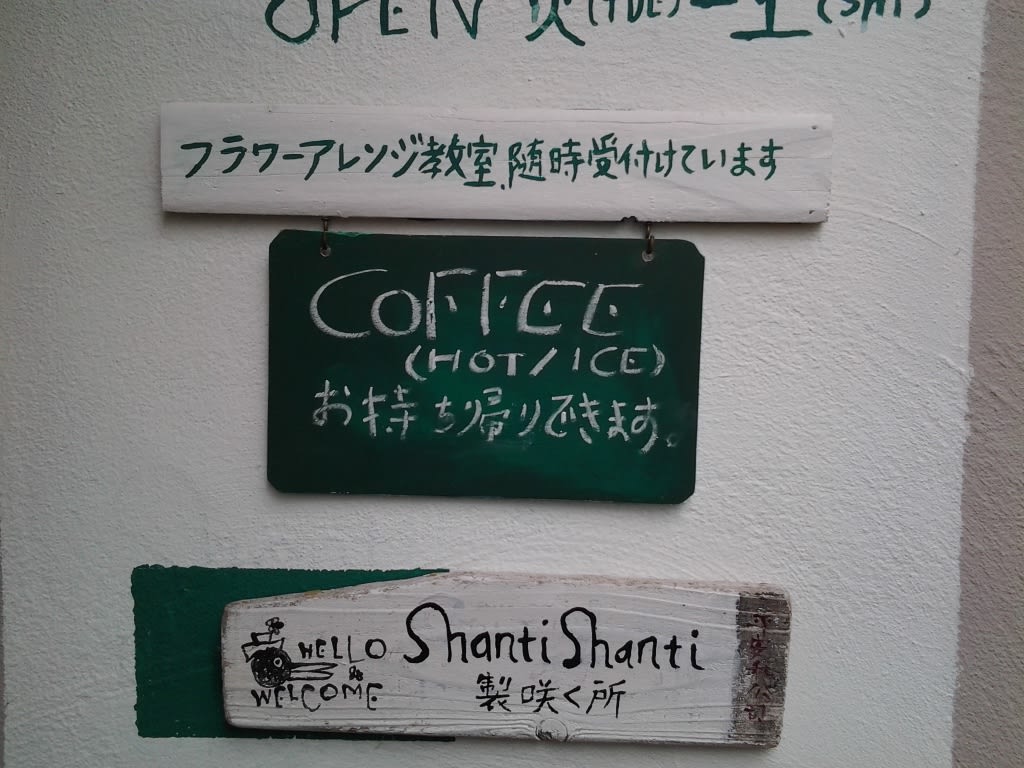 OPEN 火(TUE)ー土(SAT)
フラワーアレンジ教室、随時受付けています
COFFEE
(HOT/ICE)
お持ち帰りできます。
HELLO
WELCOME
Shanti Shanti
製咲く所